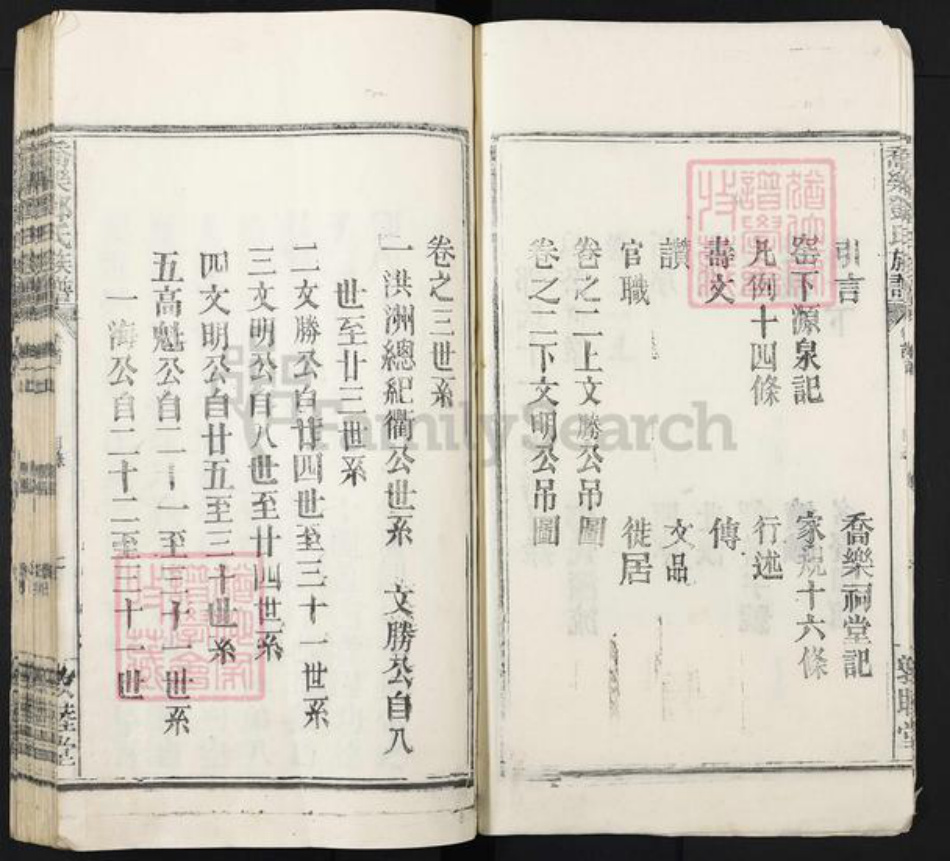 引言 喬樂祠堂記
窑下源泉記 家規十六條
凡例十四條 行述
壽文 傳
讚 文品
官職 徙居
卷之二上文勝公吊圖
卷之二下文明公吊圖
卷之三世系
一洪洲總紀衢公世系 文勝公自八
世至廿三世系
二文勝公自廿四世至三十一世系
三文明公自八世至廿四世系
四文明公自廿五至三十世系
五高魁公自二十一至三十一世系
一海公自二十二至三十一世
喬樂鄧氏族譜
FamilySearch